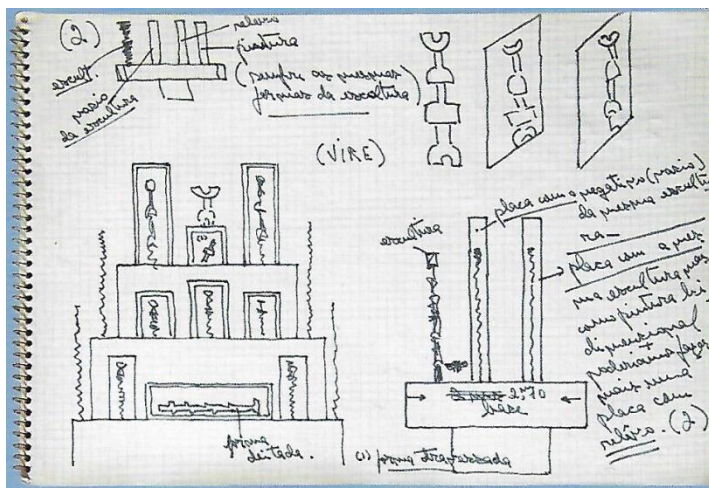 (2)
relevo
pintura
escult.
vasio
da escultura
(sempre as mesmas
formas da escultura)
(VIRE)
escultura
placa com o negativo (vasio)
da mesma escultu
ra—
placa com a mes
ma escultura mas
como pintura bi
dimensional
+
poderíamos fazer
mais uma
placa com
relêvo. (2)
2.70
base
forma
deitada.
(1) forma atravessada